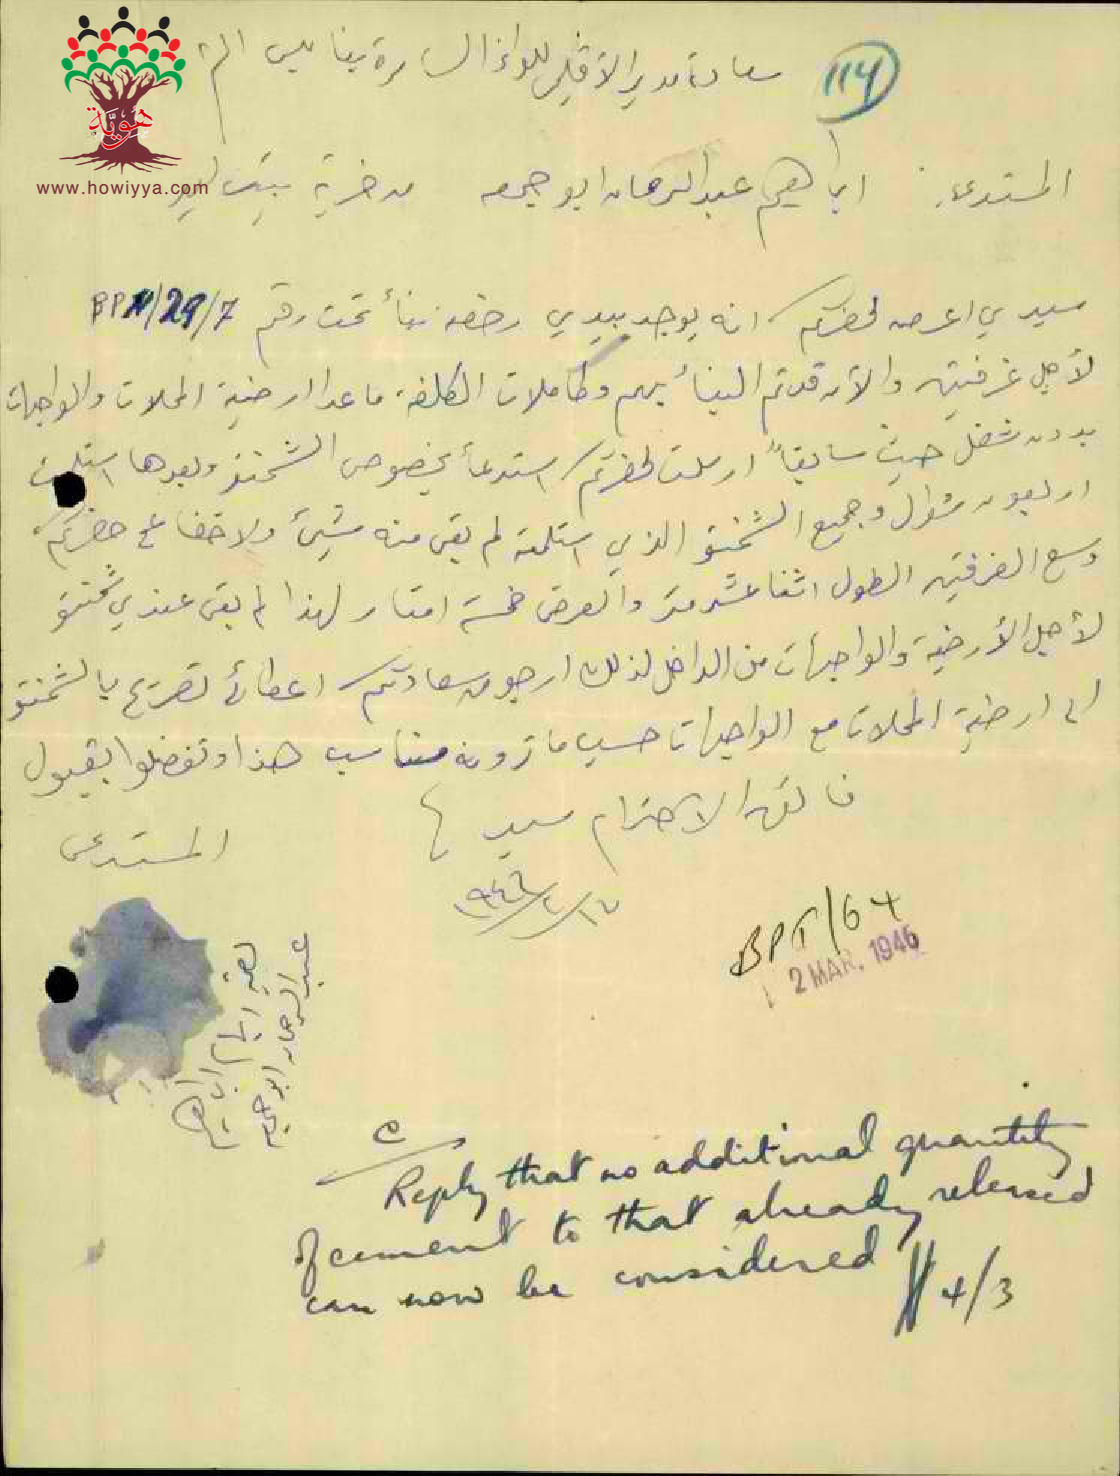 114
سعادة مدير الاقليمي للواء السامرة بنابلس
هوية
www.howiyya.com
المستدعي: ابراهيم عبد الرحمان ابو جمعه من خربة بيت ليد
سيدي اعرض لحضرتكم انه يوجد بيدي رخصة بنأ تحت رقم BP11/29/7
لأجل غرفتين والآن قد تم البنأ بهم وكاملات الكلفة ما عدا ارضية المحلات والواجهات
بدون شغل حيث سابقاً ارسلت لحضرتكم استدعأ بخصوص الشمنتو وبعدها استلمت
اربعون شوال وجميع الشمنتو الذي استلمته لم بقى منه شيئ ولا خفا على حضرتكم
وسع الغرفتين الطول اثنا عشر متر والعرض خمسة امتار لهذا لم بقى عندي شمنتو
لأجل الأرضية والواجهات من الداخل لذلك ارجو من سعادتكم اعطائي تصريح بالشمنتو
الى ارضية المحلات مع الواجهات حسب ما ترونه مناسب هذا وتفضلوا بقبول
فائق الاحترام سيدي
المستدعي
BPT/64
2 MAR. 1946
عبد الرحمان ابو جمعه
Reply that no additional quantity
of cement to that already released
can now be considered
4/3